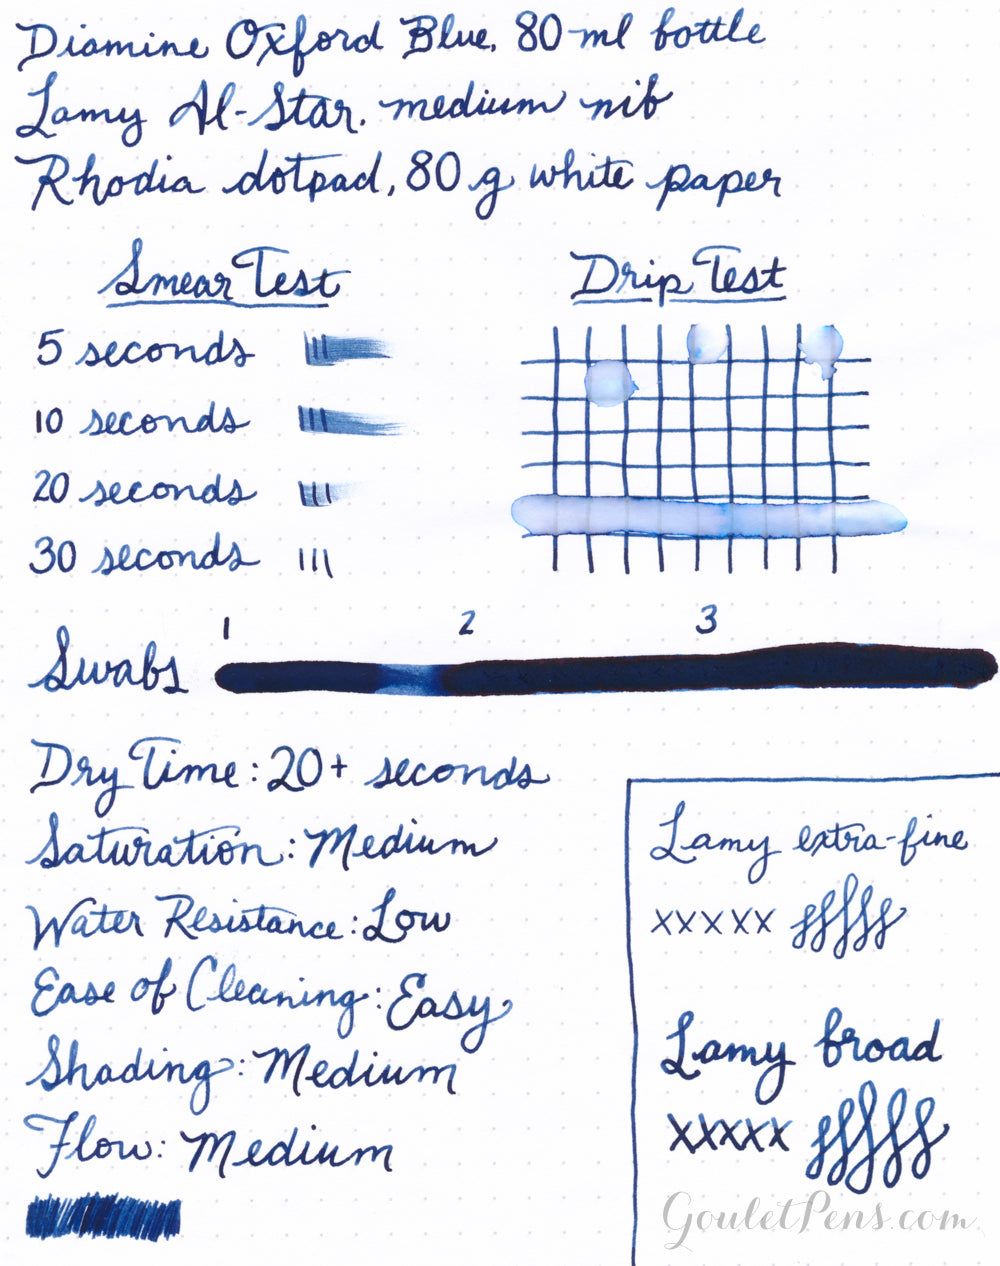 Diamine Oxford Blue, 80 ml bottle
Lamy Al-Star, medium nib
Rhodia dotpad, 80 g white paper
Smear Test
5 seconds
10 seconds
20 seconds
30 seconds
Drip Test
1 2 3
Swabs
Dry Time: 20+ seconds
Saturation: Medium
Water Resistance: Low
Ease of Cleaning: Easy
Shading: Medium
Flow: Medium
Lamy extra-fine
xxxxx
Lamy broad
xxxxx
GouletPens.com